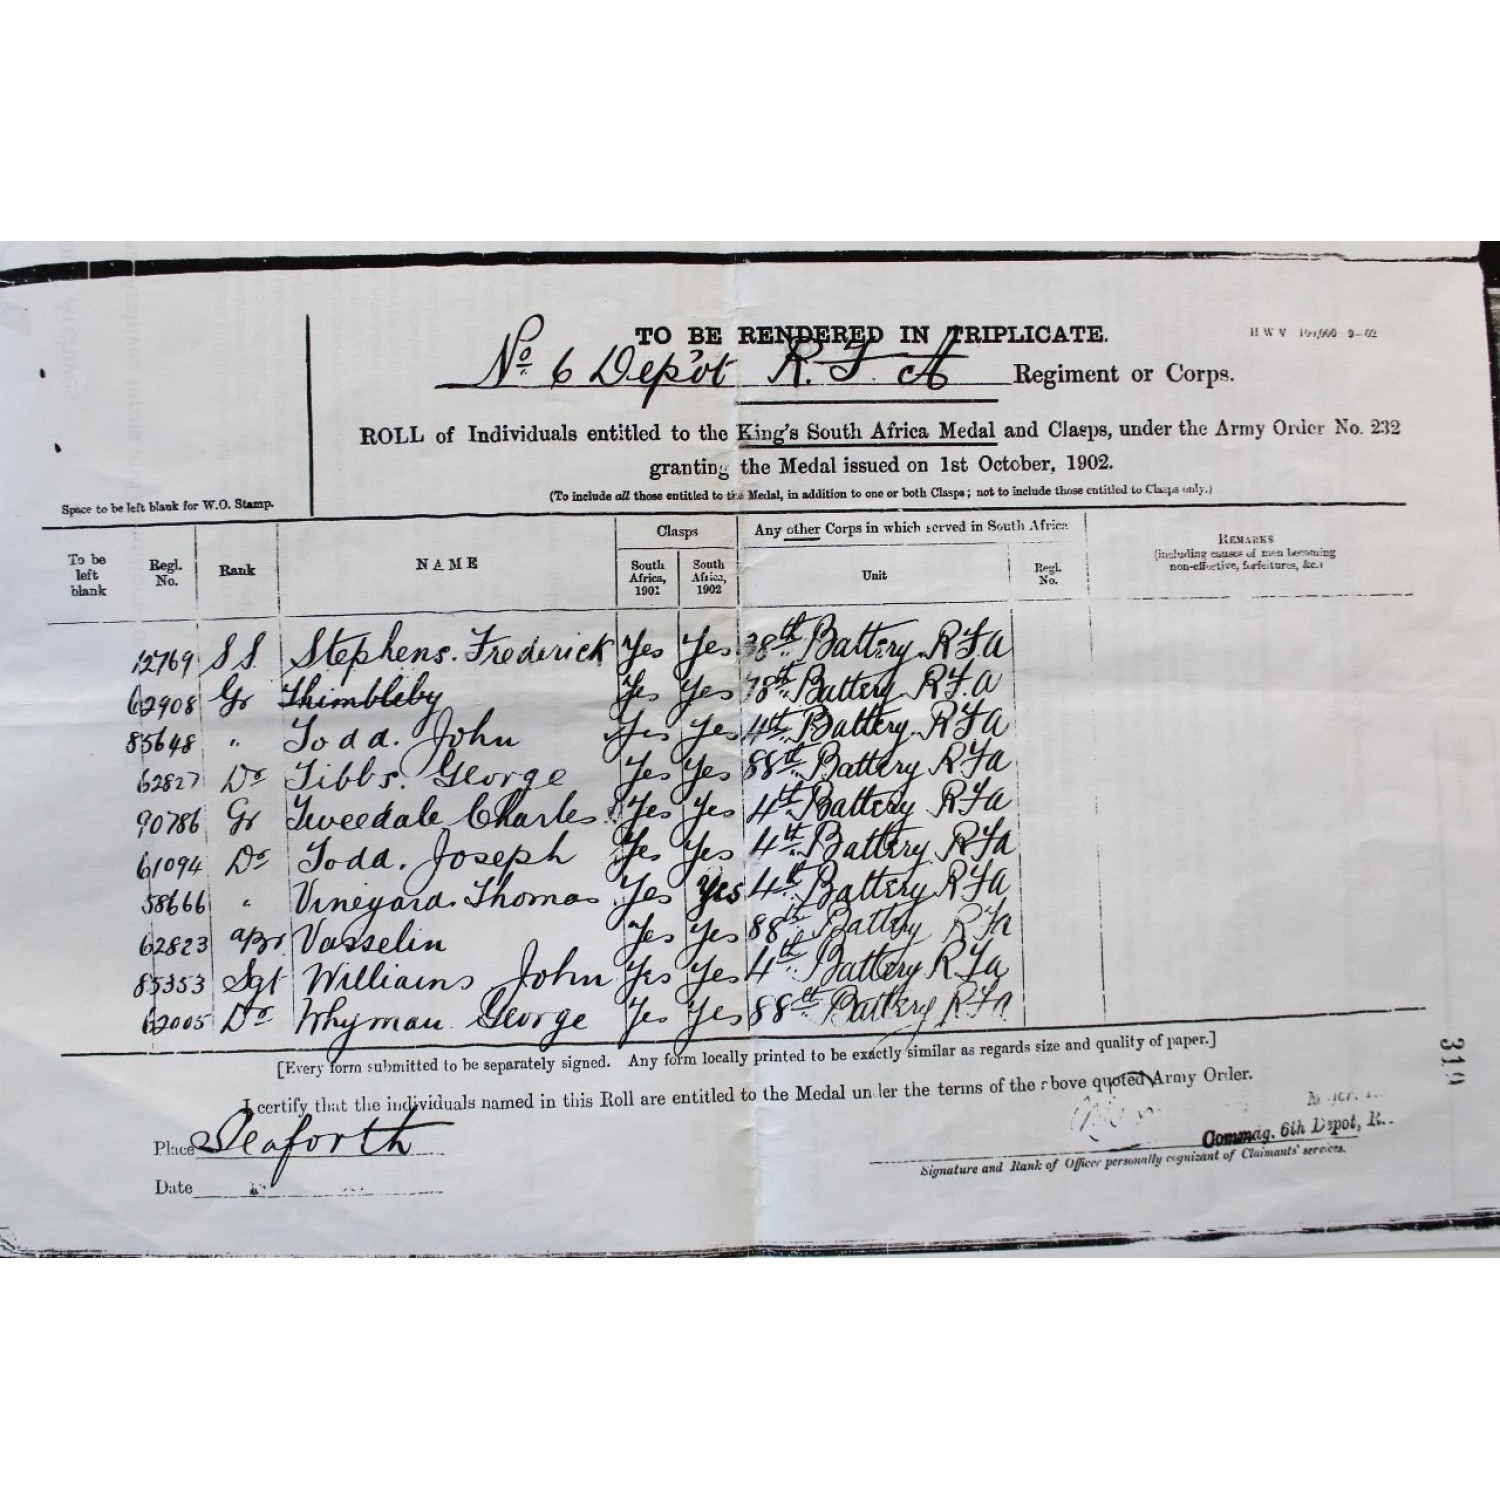 TO BE RENDERED IN TRIPLICATE.
H W V 9-02
No. 6 Depôt R. F. A Regiment or Corps.
ROLL of Individuals entitled to the King's South Africa Medal and Clasps, under the Army Order No. 232
granting the Medal issued on 1st October, 1902.
(To include all those entitled to the Medal, in addition to one or both Clasps; not to include those entitled to Clasps only.)
Space to be left blank for W.O. Stamp.
To be left blank Regl. No. Rank NAME Clasps South Africa, 1901 South Africa, 1902 Any other Corps in which served in South Africa Unit Regl. No. REMARKS (including causes of men becoming non-effective, forfeitures, &c.)
12769 S S. Stephens. Frederick Yes Yes 38th Battery R F a
62908 Gr Thimbleby Yes Yes 78th Battery R F. a
85648 " Todd. John Yes Yes 4th Battery R F a
62827 Dr Tibbs. George Yes Yes 88th Battery R F a
90786 Gr Tweedale Charles Yes Yes 4th Battery R F a
61094 Dr Todd. Joseph Yes Yes 4th Battery R F a
58666 " Vineyard. Thomas Yes Yes 4th Battery R F a
62823 Vasselin Yes Yes 88th Battery R F a
85353 Sgt Williams John Yes Yes 4th Battery R F a
62005 Dr Whyman George Yes Yes 88th Battery R F a
[Every form submitted to be separately signed. Any form locally printed to be exactly similar as regards size and quality of paper.]
319
I certify that the individuals named in this Roll are entitled to the Medal under the terms of the above quoted Army Order.
Place Seaforth
Commdg. 6th Depot, R..
Signature and Rank of Officer personally cognizant of Claimants' services.
Date